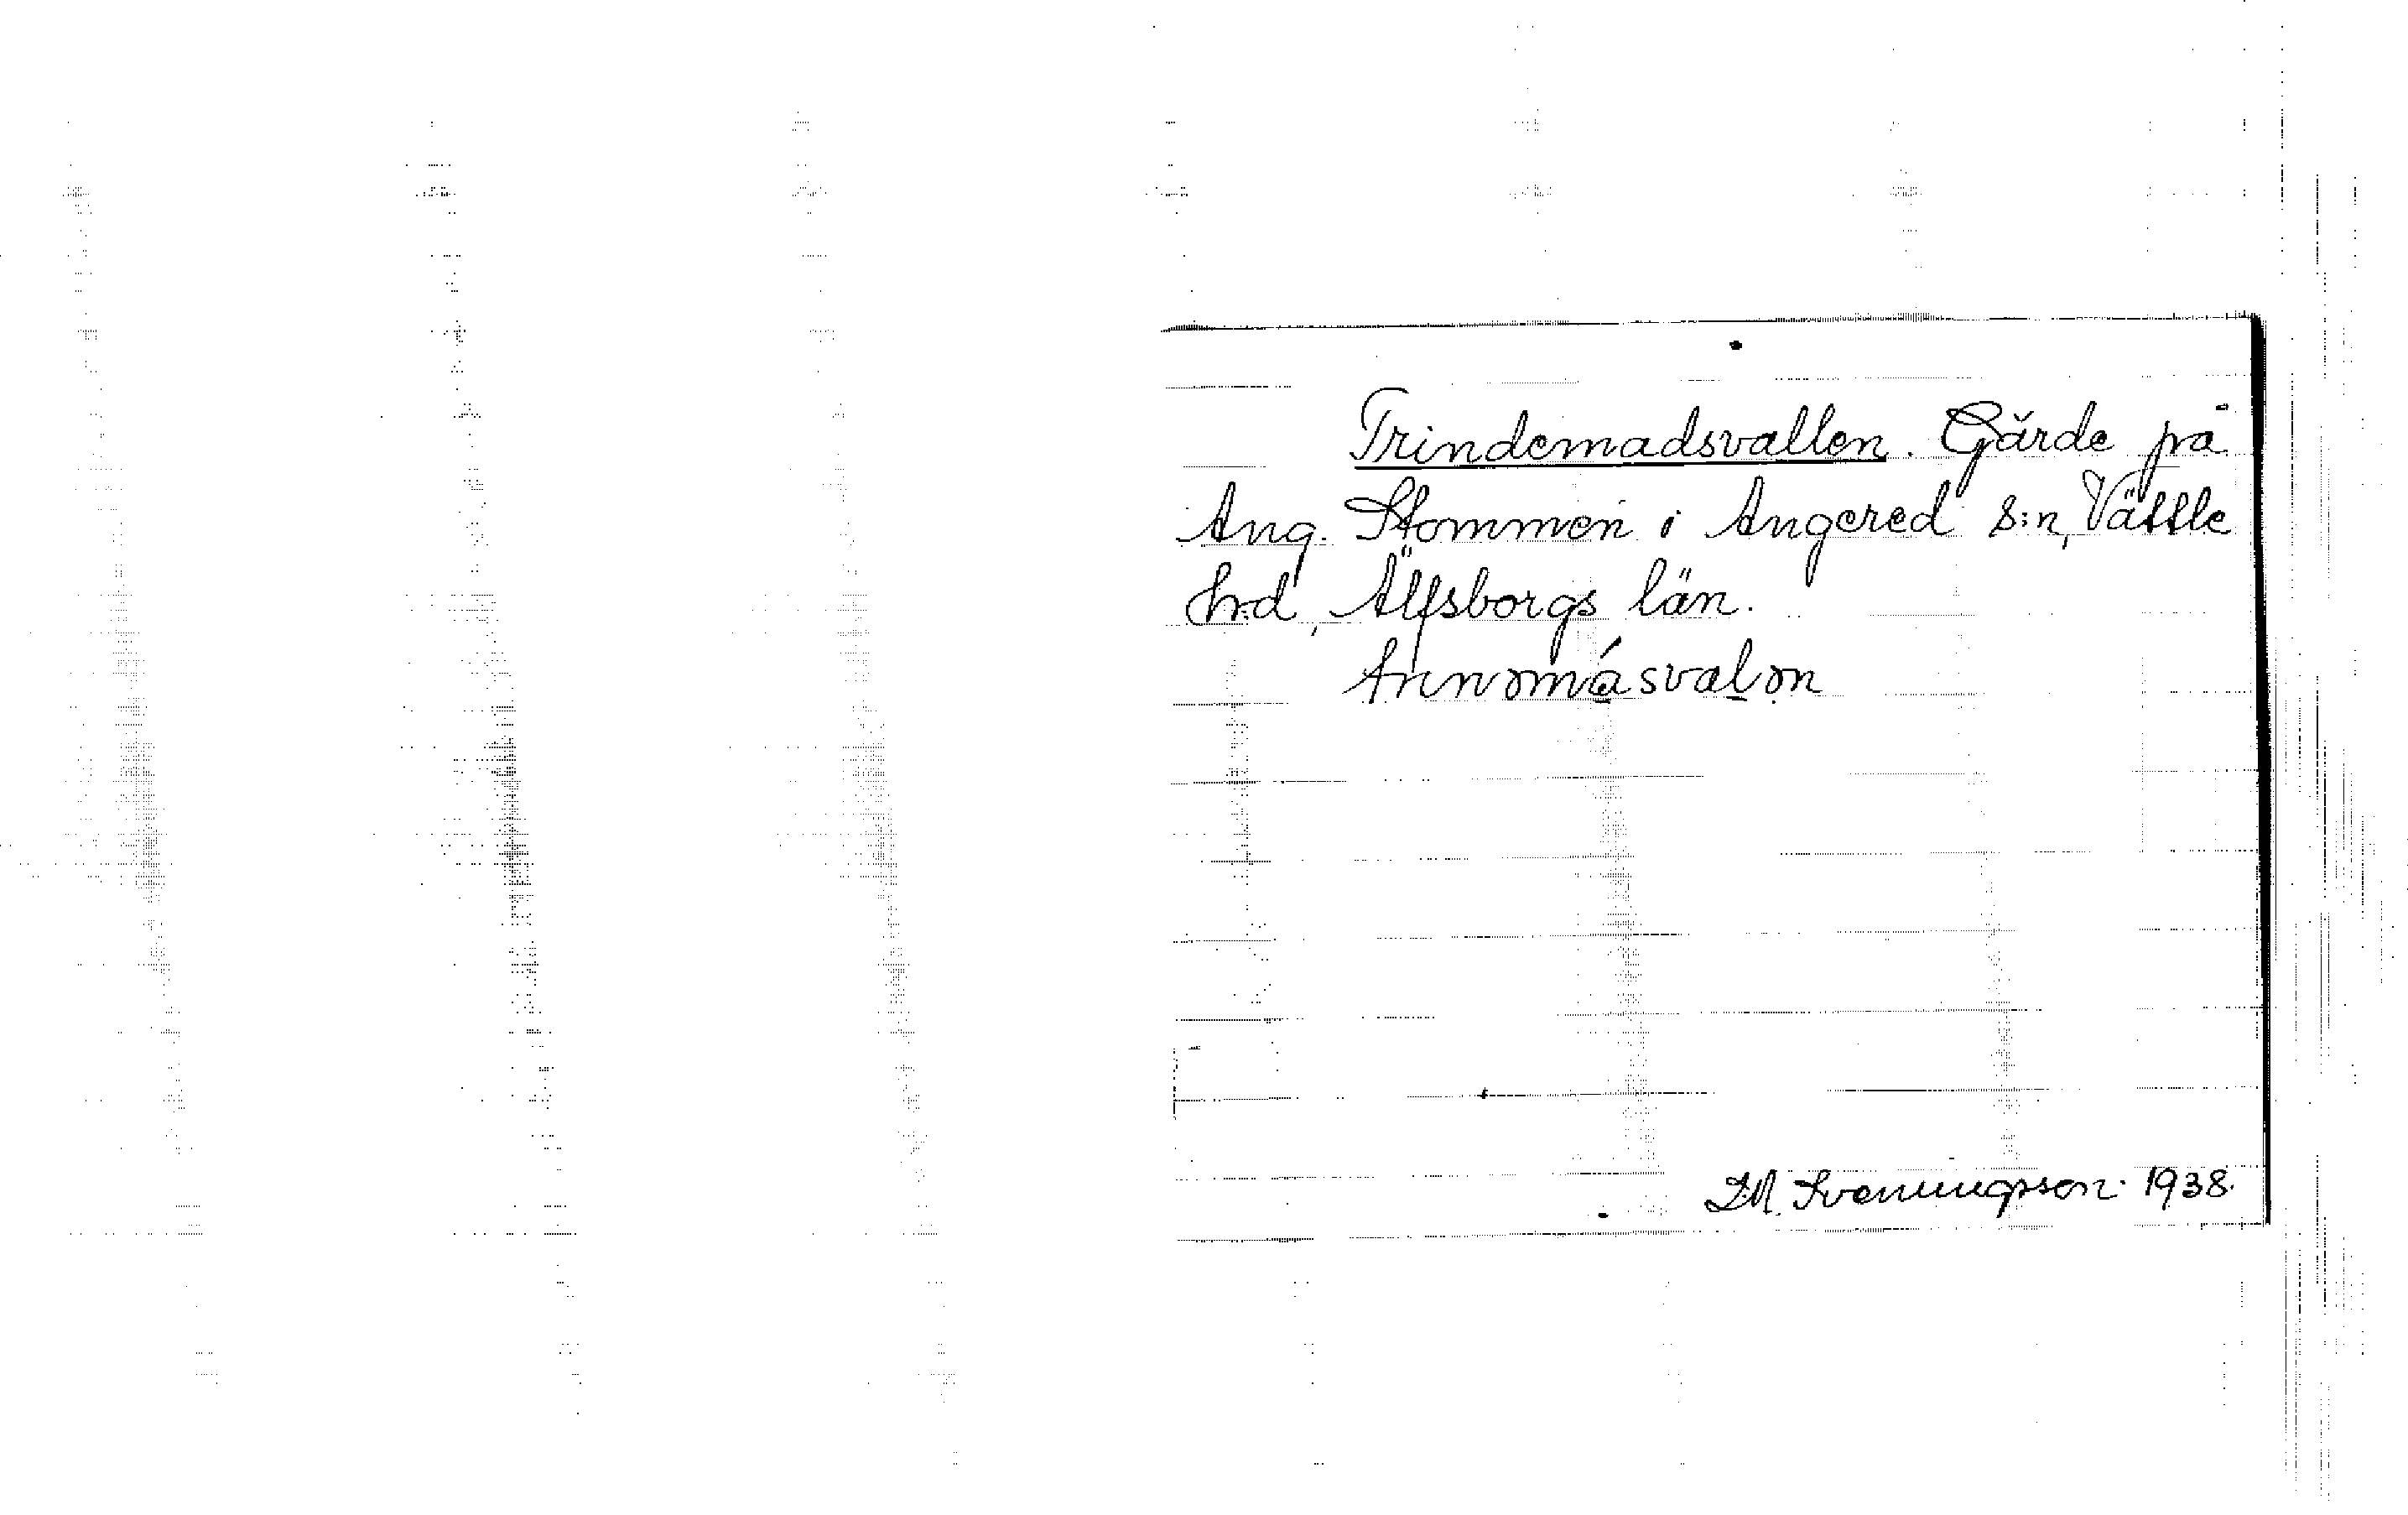 Trindemadsvallen. Gärde på
Ang. Stommen i Angered s:n, Vättle
hd, Älfsborgs län.
D.M. Svenungsson. 1938.